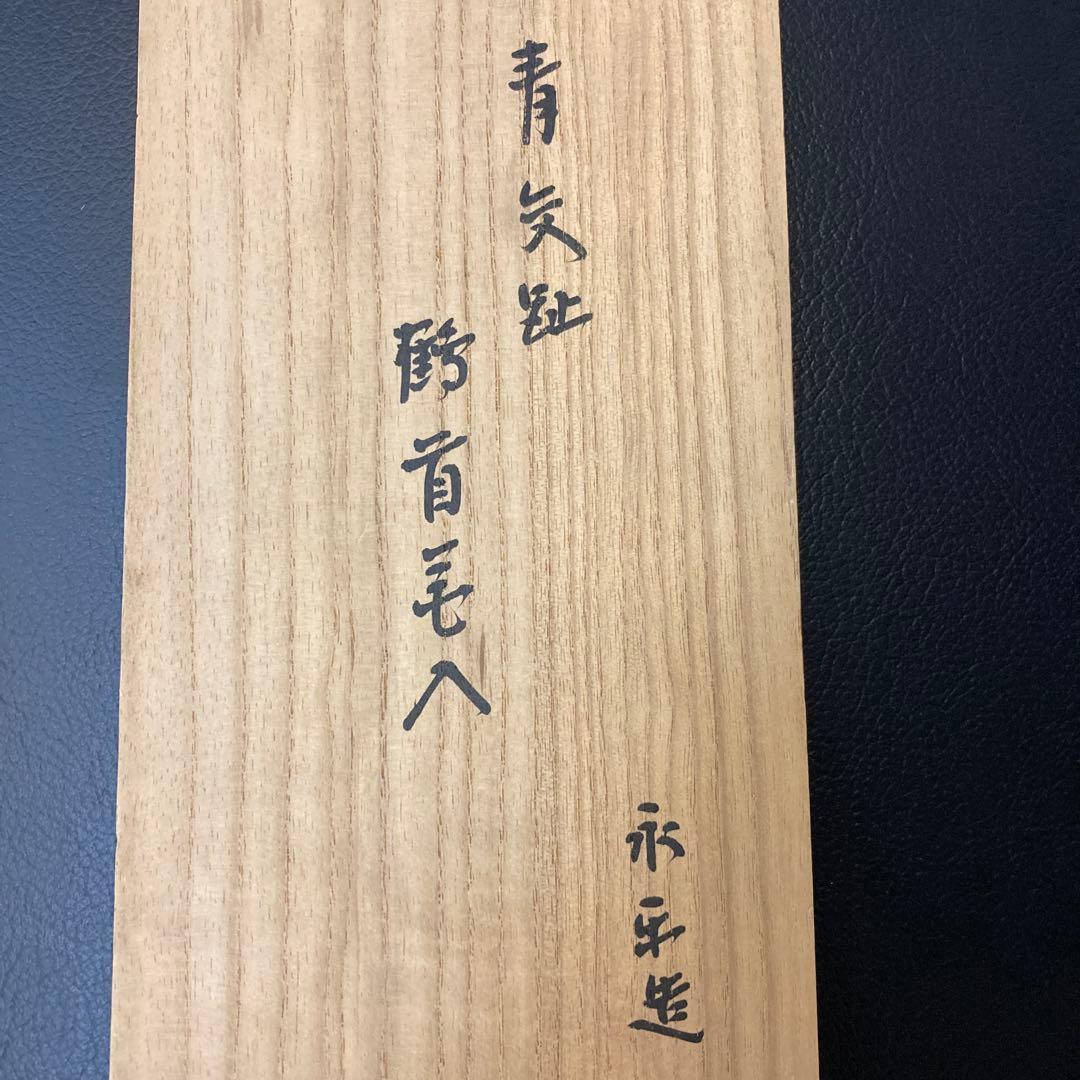 青交趾
鶴首花入
永平造